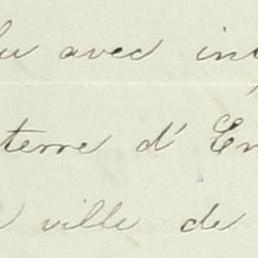 lu avec int
terre d' En
ville de